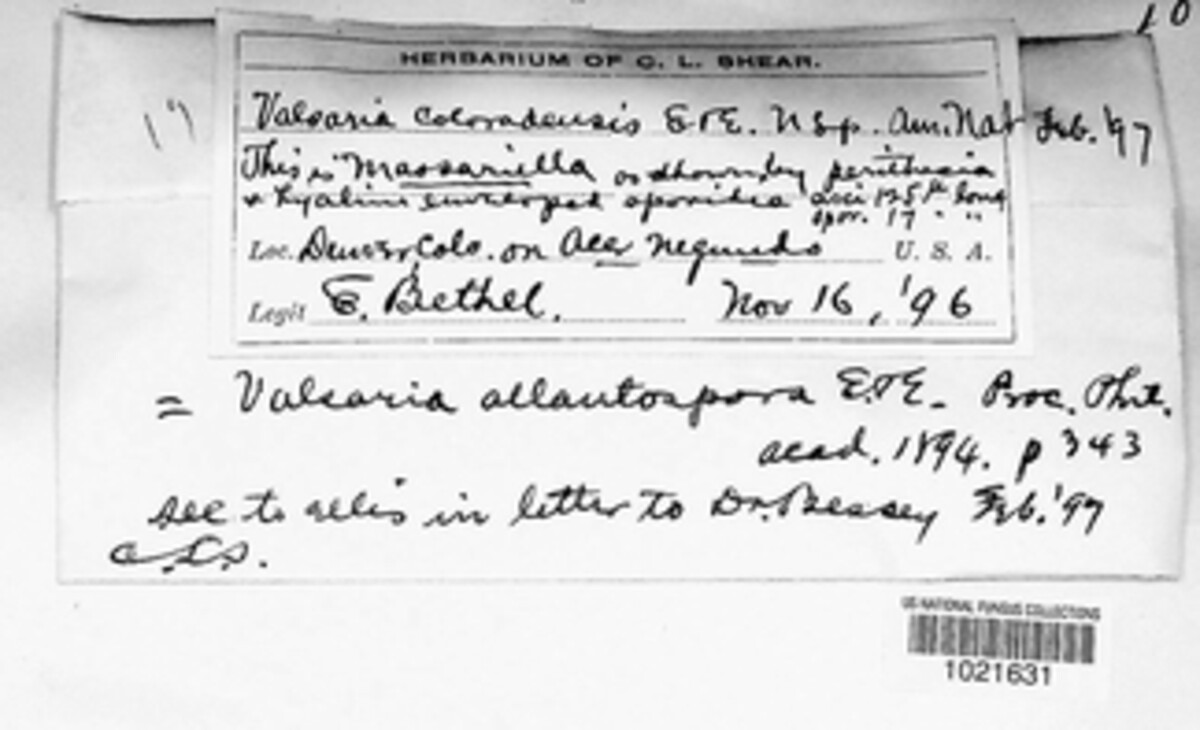 10
HERBARIUM OF C. L. SHEAR.
Valsaria Coloradensis E&E. n sp. Am. Nat Feb. '97
This is Massariella as shown by perithecia
& hyaline enveloped sporidia asci 125 µ long
spor. 17 " "
Loc. Denver, Colo. on Acer negundo U. S. A.
Legit E. Bethel. Nov 16, '96
= Valsaria allantospora E.&E. Proc. Phil.
acad. 1894. p 343
sec to Ellis in letter to Dr. Bessey Feb. '97
C.L.S.
US NATIONAL FUNGUS COLLECTIONS
1021631